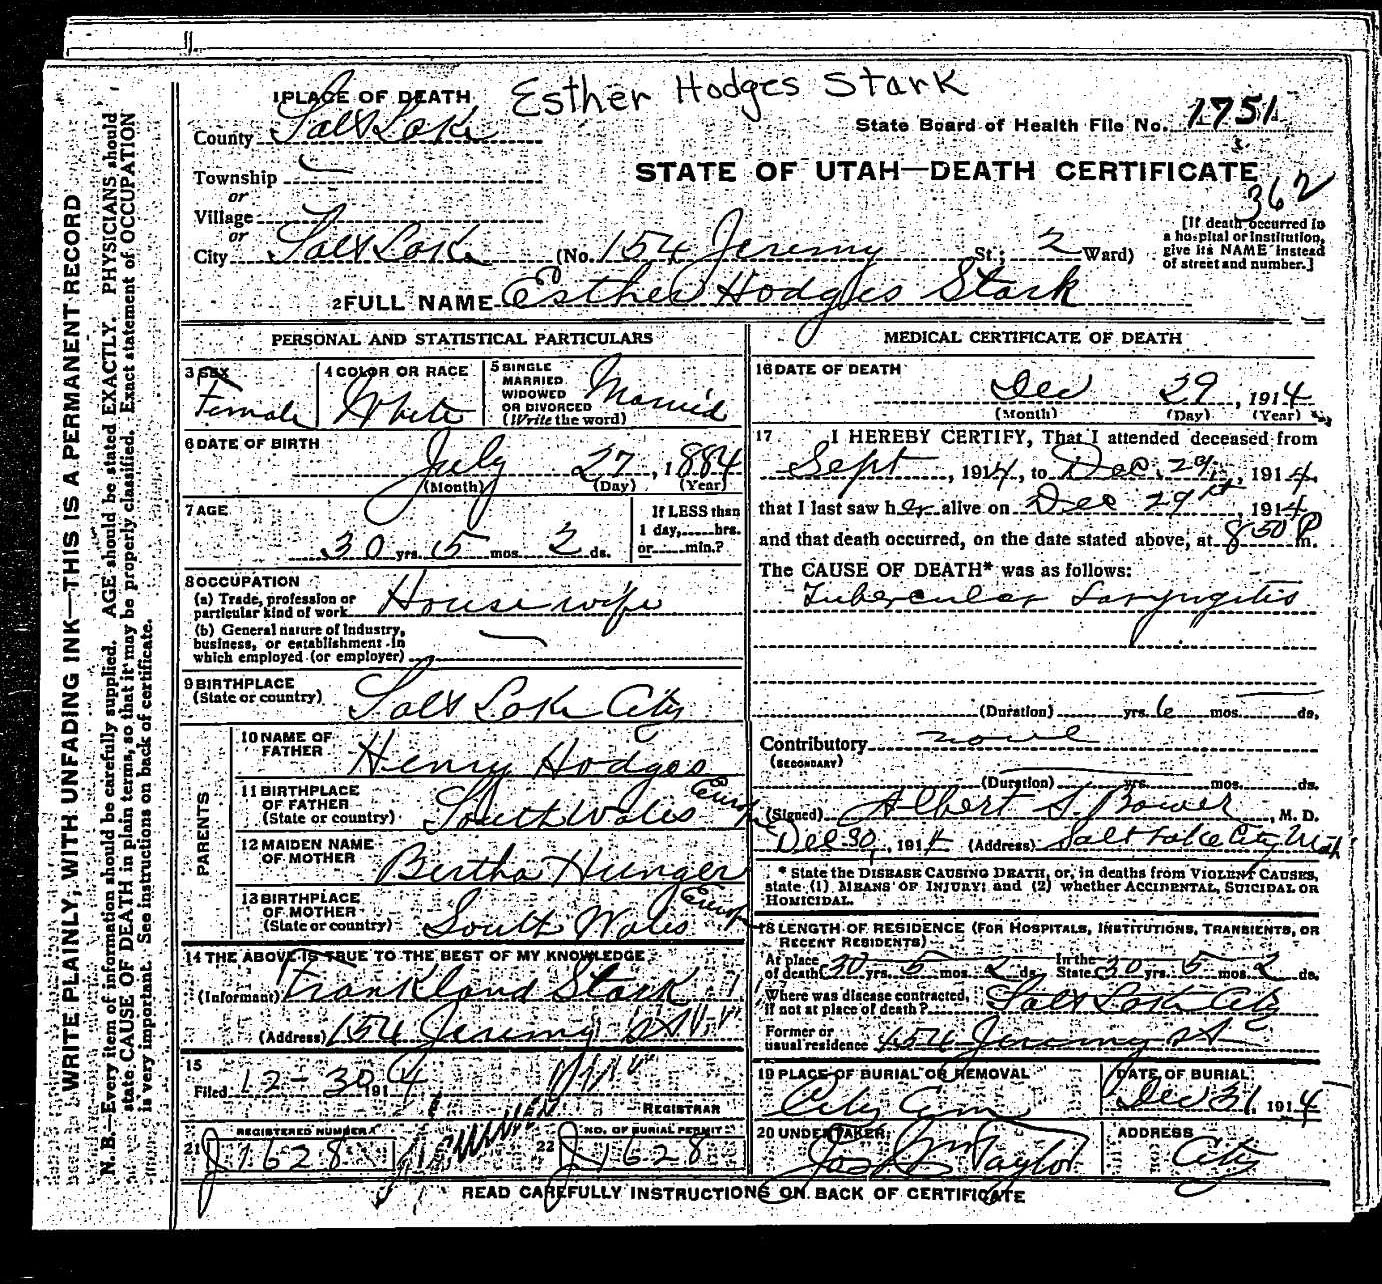 Esther Hodges Stark
1 PLACE OF DEATH
County Salt Lake
State Board of Health File No. 1751
Township
or
Village
or
City Salt Lake (No. 154 Jeremy St.; 2 Ward)
STATE OF UTAH—DEATH CERTIFICATE
362
[If death occurred in
a hospital or institution,
give its NAME instead
of street and number.]
2 FULL NAME Esther Hodges Stark
PERSONAL AND STATISTICAL PARTICULARS
3 SEX Female
4 COLOR OR RACE White
5 SINGLE
MARRIED
WIDOWED
OR DIVORCED
(Write the word) Married
6 DATE OF BIRTH
July 27, 1884
(Month) (Day) (Year)
7 AGE
30 yrs. 5 mos. 2 ds.
If LESS than
1 day, hrs.
or min.?
8 OCCUPATION
(a) Trade, profession or
particular kind of work Housewife
(b) General nature of industry,
business, or establishment in
which employed (or employer)
9 BIRTHPLACE
(State or country) Salt Lake City
PARENTS
10 NAME OF
FATHER Henry Hodges
11 BIRTHPLACE
OF FATHER
(State or country) South Wales Europ
12 MAIDEN NAME
OF MOTHER Bertha Hunger
13 BIRTHPLACE
OF MOTHER
(State or country) South Wales Europ
14 THE ABOVE IS TRUE TO THE BEST OF MY KNOWLEDGE
(Informant) Frankland Stark
(Address) 154 Jeremy st
15
Filed 12-30 1914
REGISTRAR
REGISTERED NUMBER
21 J 1628
NO. OF BURIAL PERMIT
22 J 1628
MEDICAL CERTIFICATE OF DEATH
16 DATE OF DEATH
Dec 29, 1914
(Month) (Day) (Year)
17 I HEREBY CERTIFY, That I attended deceased from
Sept, 1914, to Dec. 29, 1914,
that I last saw her alive on Dec 29, 1914
and that death occurred, on the date stated above, at 8 50 P m.
The CAUSE OF DEATH* was as follows:
Tubercular Laryngitis
(Duration) yrs. 6 mos. ds.
Contributory none
(SECONDARY)
(Duration) yrs. mos. ds.
(Signed) Albert S. Bower, M. D.
Dec 30, 1914 (Address) Salt Lake City Utah
* State the DISEASE CAUSING DEATH, or, in deaths from VIOLENT CAUSES,
state (1) MEANS OF INJURY; and (2) whether ACCIDENTAL, SUICIDAL OR
HOMICIDAL.
18 LENGTH OF RESIDENCE (FOR HOSPITALS, INSTITUTIONS, TRANSIENTS, OR
RECENT RESIDENTS)
At place
of death 30 yrs. 5 mos. 2 ds. In the
State 30 yrs. 5 mos. 2 ds.
Where was disease contracted,
if not at place of death? Salt Lake City
Former or
usual residence 154 Jeremy st
19 PLACE OF BURIAL OR REMOVAL
City Cem
DATE OF BURIAL
Dec 31, 1914
20 UNDERTAKER
Jos Wm Taylor
ADDRESS
City
READ CAREFULLY INSTRUCTIONS ON BACK OF CERTIFICATE
WRITE PLAINLY, WITH UNFADING INK—THIS IS A PERMANENT RECORD
N. B.—Every item of information should be carefully supplied. AGE should be stated EXACTLY. PHYSICIANS should
state CAUSE OF DEATH in plain terms, so that it may be properly classified. Exact statement of OCCUPATION
is very important. See instructions on back of certificate.